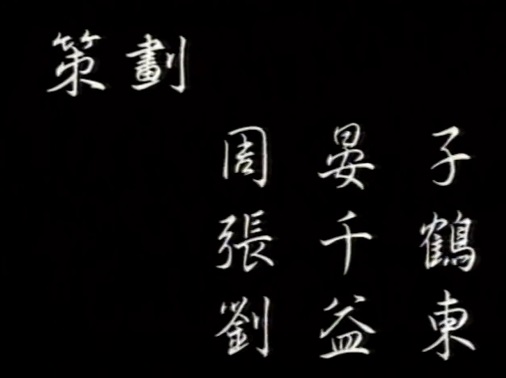 策劃
周晏子
張千鶴
劉益東